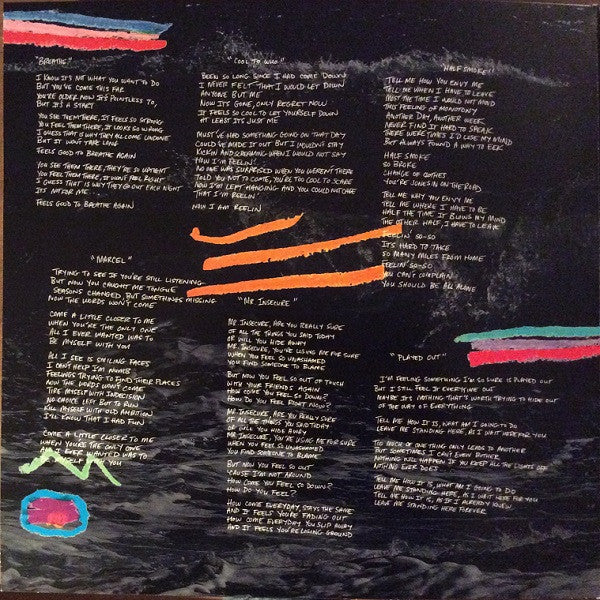 "BREATHE"
I KNOW IT'S NOT WHAT YOU WANT TO DO
BUT YOU'VE COME THIS FAR
YOU'RE OLDER NOW IT'S POINTLESS TO,
BUT IT'S A START
YOU SEE THEM THERE, IT FEELS SO STRONG
YOU FEEL THEM THERE, IT LOOKS SO WRONG
I GUESS THAT IS WHY THEY ALL COME UNDONE
BUT IT WON'T TAKE LONG
FEELS GOOD TO BREATHE AGAIN
YOU SEE THEM THERE, THEY'RE SO UPTIGHT
YOU FEEL THEM THERE, IT DON'T FEEL RIGHT
I GUESS THAT IS WHY THEY GO OUT EACH NIGHT
IT'S NOT FOR ME...
FEELS GOOD TO BREATHE AGAIN
"COOL TO WHO"
BEEN SO LONG SINCE I HAD COME DOWN
I NEVER FELT THAT I WOULD LET DOWN
ANYONE BUT ME
NOW IT'S GONE, ONLY REGRET NOW
IT FEELS SO COOL TO LET YOURSELF DOWN
AT LEAST IT'S JUST ME
MUST'VE HAD SOMETHING GOING ON THAT DAY
COULD'VE MADE IT OUT BUT I WOULDN'T STAY
KICKIN AND SCREAMING WHEN I WOULD NOT SAY
HOW I'M REELIN'
NO ONE WAS SURPRISED WHEN YOU WEREN'T THERE
TOLD YOU NOT TO COME, YOU'RE TOO COOL TO SCARE
NOW I'M LEFT HANGING AND YOU COULD NOT CARE
THAT I'M REELIN'
HOW I AM REELIN
HALF SMOKE
TELL ME HOW YOU ENVY ME
TELL ME WHEN I HAVE TO LEAVE
MOST THE TIME I WOULD NOT MIND
THIS FEELING OF MONOTONY
ANOTHER DAY, ANOTHER WEEK
NEVER FIND IT HARD TO SPEAK
THERE WERE TIMES I'D LOSE MY MIND
BUT ALWAYS FOUND A WAY TO
HALF SMOKE
SO BROKE
CHANGE OF OUTFIT
YOU'RE JONESIN ON THE ROAD
TELL ME WHY YOU ENVY ME
TELL ME WHERE I HAVE TO BE
HALF THE TIME IT BLOWS MY MIND
THE OTHER HALF, I HAVE TO LEAVE
FEELIN' SO-SO
IT'S HARD TO TAKE
SO MANY MILES FROM HOME
FEELIN' SO-SO
YOU CAN'T COMPLAIN
YOU SHOULD BE ALL ALONE
"MARCEL"
TRYING TO SEE IF YOU'RE STILL LISTENING
BUT NOW YOU CAUGHT ME TONGUE
SEASONS CHANGED, BUT SOMETHING'S MISSING
NOW THE WORDS WON'T COME
COME A LITTLE CLOSER TO ME
WHEN YOU'RE THE ONLY ONE
ALL I EVER WANTED WAS TO
BE MYSELF WITH YOU
ALL I SEE IS SMILING FACES
I CAN'T HELP I'M NUMB
FEELINGS TRYING TO FIND THEIR PLACES
NOW THE WORDS DON'T COME
TIRE MYSELF WITH INDECISION
NO CHOICE LEFT BUT TO RUN
KILL MYSELF WITH OLD AMBITION
I'LL KNOW THAT I HAD FUN
COME A LITTLE CLOSER TO ME
WHEN YOU'RE THE ONLY ONE
I EVER WANTED WAS TO
YOU
"MR INSECURE"
MR INSECURE, ARE YOU REALLY SURE
OF ALL THE THINGS YOU SAID TODAY
OR WILL YOU HIDE AWAY
MR INSECURE, YOU'RE USING ME FOR SURE
WHEN YOU FEEL SO UNASHAMED
YOU FIND SOMEONE TO BLAME
BUT NOW YOU FEEL SO OUT OF TOUCH
WITH YOUR FRIENDS HIGH
HOW COME YOU FEEL SO DOWN?
HOW DO YOU FEEL RIGHT NOW?
MR INSECURE, ARE YOU REALLY SURE
OF ALL THE THINGS YOU SAID TODAY
OR WILL YOU HIDE AWAY
MR INSECURE, YOU'RE USING ME FOR SURE
WHEN YOU FEEL SO UNASHAMED
YOU FIND SOMEONE TO BLAME
BUT NOW YOU FEEL SO OUT
'CAUSE I'M NOT AROUND
HOW COME YOU FEEL SO DOWN?
HOW DO YOU FEEL?
HOW COME EVERYDAY STAYS THE SAME
AND IT FEELS YOU'RE FADING OUT
HOW COME EVERYDAY YOU SLIP AWAY
AND IT FEELS YOU'RE LOSING GROUND
"PLAYED OUT"
I'M FEELING SOMETHING I'M SURE IS PLAYED OUT
BUT I STILL FEEL IT EVERYONE OUT
MAYBE IT'S NOTHING THAT'S WORTH TRYING TO HIDE OUT
OF THE WAY OF EVERYTHING
TELL ME HOW IT IS, WHAT AM I GOING TO DO
LEAVE ME STANDING HERE, AS I WAIT HERE FOR YOU
TO MUCH OF ONE THING ONLY LEADS TO ANOTHER
BUT SOMETIMES I CAN'T EVEN BOTHER
NOTHING WILL HAPPEN IF YOU KEEP ALL THE LIGHTS OUT
NOTHING EVER DOES
TELL ME HOW IT IS, WHAT AM I GOING TO DO
LEAVE ME STANDING HERE, AS I WAIT HERE FOR YOU
TELL ME HOW IT IS, AS IF I ALREADY KNEW
LEAVE ME STANDING HERE FOREVER